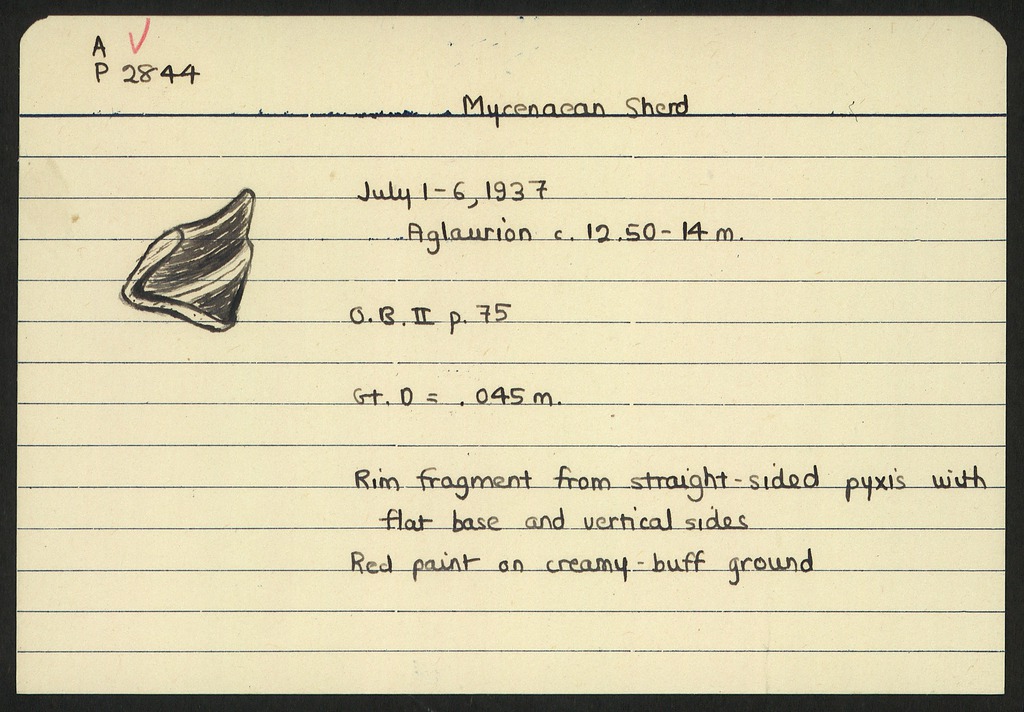 A
P 2844
Mycenaean Sherd
July 1-6, 1937
Aglaurion c. 12.50-14 m.
O.B. II p. 75
Gt. D = .045 m.
Rim fragment from straight-sided pyxis with
flat base and vertical sides
Red paint on creamy-buff ground